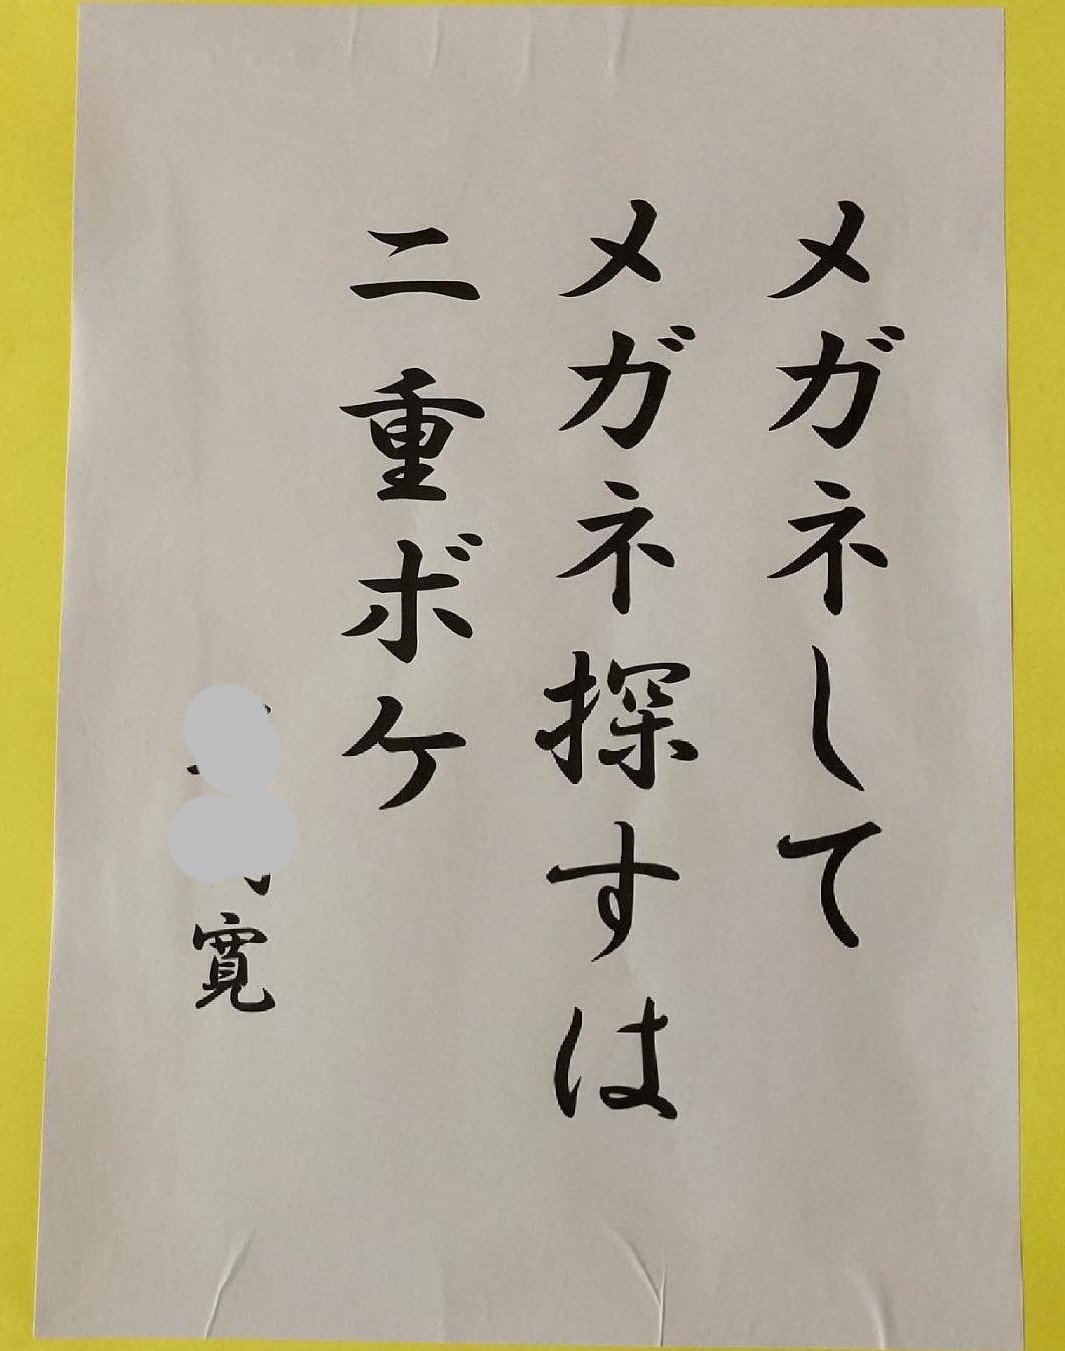 メガネして
メガネ探すは
二重ボケ
寛